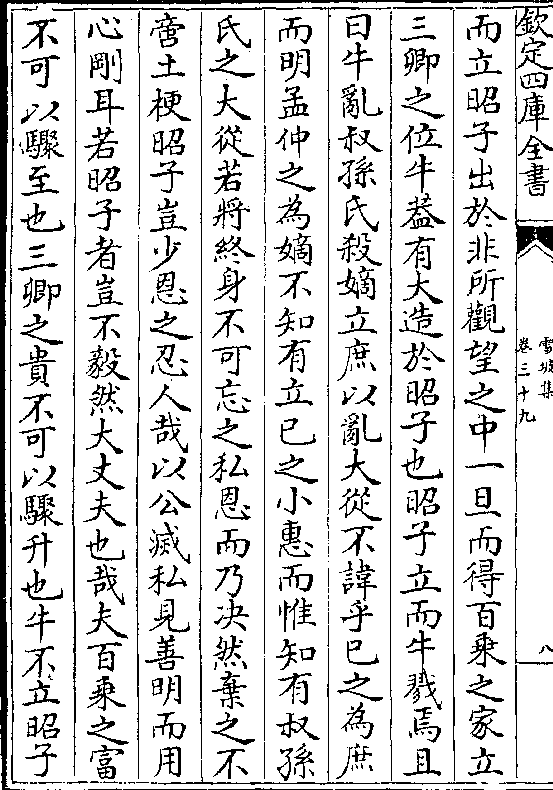 欽定四庫全書
雪坡集
卷三十九
八
而立昭子出於非所觀望之中一旦而得百乗之家立
三卿之位牛葢有大造於昭子也昭子立而牛戮焉且
曰牛亂叔孫氏殺嫡立庶以亂大從不諱乎已之為庶
而明孟仲之為嫡不知有立已之小惠而惟知有叔孫
氏之大從若將終身不可忘之私恩而乃决然棄之不
啻土梗昭子豈少恩之忍人哉以公滅私見善明而用
心剛耳若昭子者豈不毅然大丈夫也哉夫百乗之富
不可以驟至也三卿之貴不可以驟升也牛不立昭子